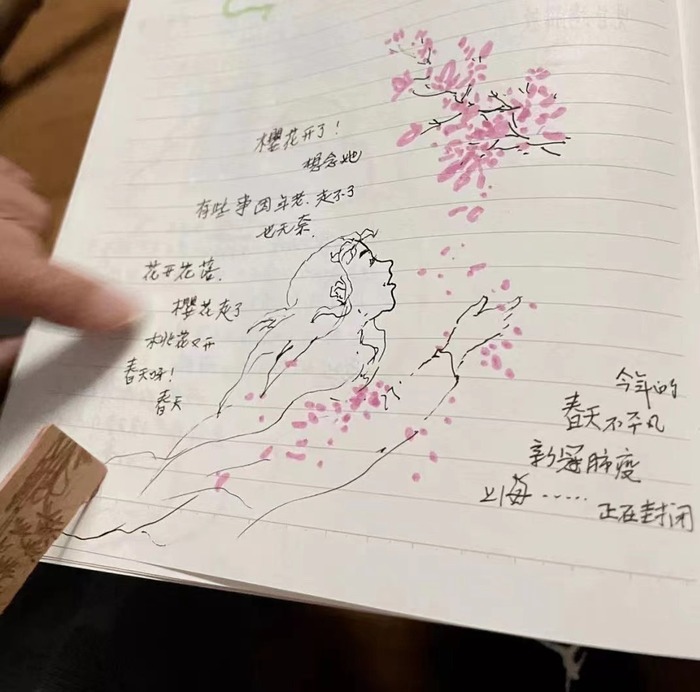 樱花开了！
想念她
有些事因年老.走不了
也无奈.
花开花落.
樱花走了
桃花又开
春天呀！
春天
今年的
春天不平凡
新冠肺疫
上海……
正在封闭